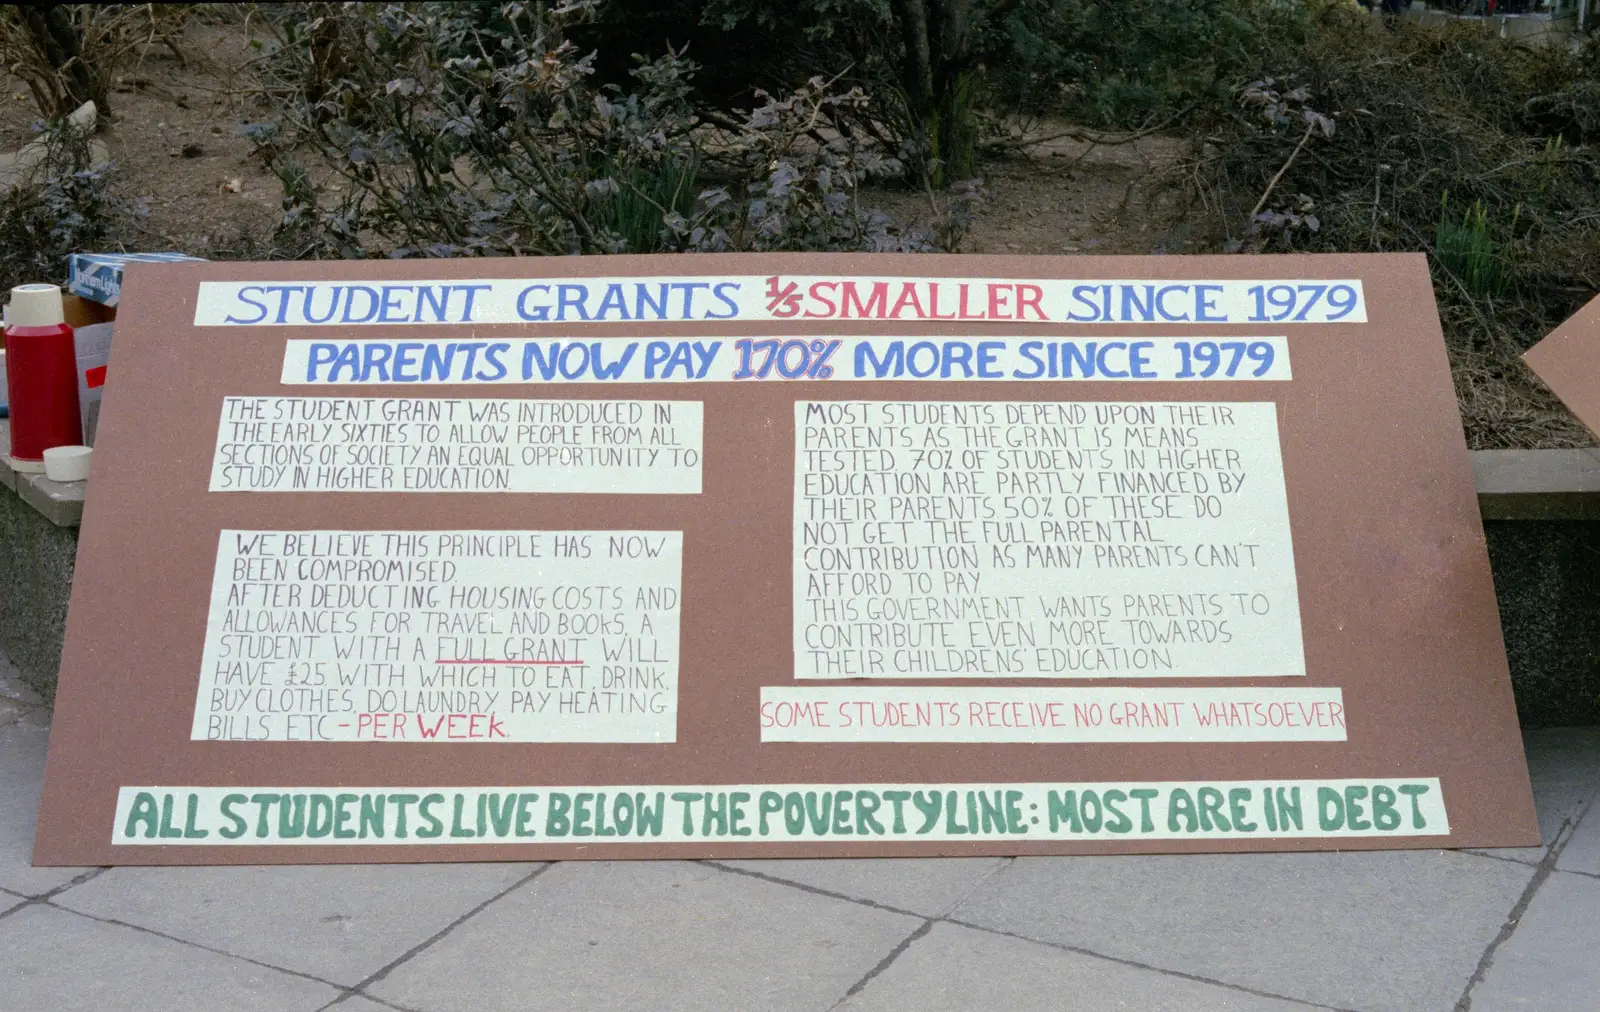 STUDENT GRANTS 1/5 SMALLER SINCE 1979
PARENTS NOW PAY 170% MORE SINCE 1979
THE STUDENT GRANT WAS INTRODUCED IN
THE EARLY SIXTIES TO ALLOW PEOPLE FROM ALL
SECTIONS OF SOCIETY AN EQUAL OPPORTUNITY TO
STUDY IN HIGHER EDUCATION.
WE BELIEVE THIS PRINCIPLE HAS NOW
BEEN COMPROMISED.
AFTER DEDUCTING HOUSING COSTS AND
ALLOWANCES FOR TRAVEL AND BOOKS, A
STUDENT WITH A FULL GRANT WILL
HAVE £25 WITH WHICH TO EAT, DRINK,
BUY CLOTHES, DO LAUNDRY, PAY HEATING
BILLS ETC - PER WEEK.
MOST STUDENTS DEPEND UPON THEIR
PARENTS AS THE GRANT IS MEANS
TESTED. 70% OF STUDENTS IN HIGHER
EDUCATION ARE PARTLY FINANCED BY
THEIR PARENTS 50% OF THESE DO
NOT GET THE FULL PARENTAL
CONTRIBUTION AS MANY PARENTS CAN'T
AFFORD TO PAY
THIS GOVERNMENT WANTS PARENTS TO
CONTRIBUTE EVEN MORE TOWARDS
THEIR CHILDRENS' EDUCATION.
SOME STUDENTS RECEIVE NO GRANT WHATSOEVER
ALL STUDENTS LIVE BELOW THE POVERTY LINE: MOST ARE IN DEBT